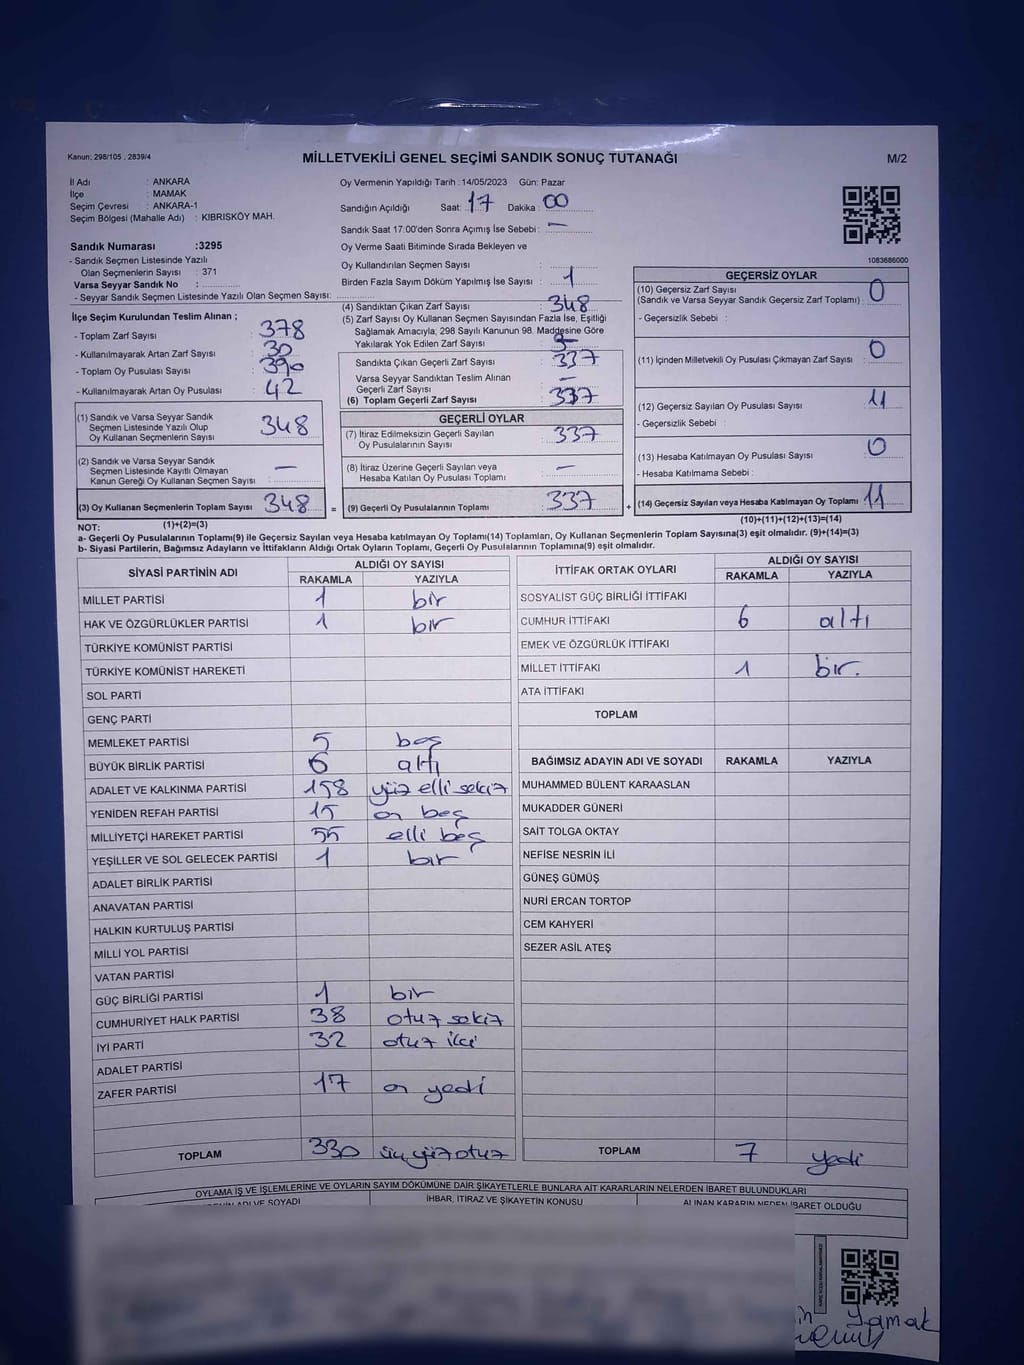 Kanun: 298/105 , 2839/4
MİLLETVEKİLİ GENEL SEÇİMİ SANDIK SONUÇ TUTANAĞI
M/2
İl Adı : ANKARA
İlçe : MAMAK
Seçim Çevresi : ANKARA-1
Seçim Bölgesi (Mahalle Adı) : KIBRISKÖY MAH.
Oy Vermenin Yapıldığı Tarih :14/05/2023 Gün: Pazar
Sandığın Açıldığı Saat: 17 Dakika : 00
Sandık Saat 17:00'den Sonra Açımış İse Sebebi : —
Oy Verme Saati Bitiminde Sırada Bekleyen ve
Oy Kullandırılan Seçmen Sayısı :
Birden Fazla Sayım Döküm Yapılmış İse Sayısı : 1
1083686000
Sandık Numarası :3295
- Sandık Seçmen Listesinde Yazılı
Olan Seçmenlerin Sayısı : 371
Varsa Seyyar Sandık No :
- Seyyar Sandık Seçmen Listesinde Yazılı Olan Seçmen Sayısı:
İlçe Seçim Kurulundan Teslim Alınan ;
- Toplam Zarf Sayısı : 378
- Kullanılmayarak Artan Zarf Sayısı : 30
- Toplam Oy Pusulası Sayısı : 390
- Kullanılmayarak Artan Oy Pusulası : 42
(1) Sandık ve Varsa Seyyar Sandık
Seçmen Listesinde Yazılı Olup
Oy Kullanan Seçmenlerin Sayısı : 348
(2) Sandık ve Varsa Seyyar Sandık
Seçmen Listesinde Kayıtlı Olmayan
Kanun Gereği Oy Kullanan Seçmen Sayısı : —
(3) Oy Kullanan Seçmenlerin Toplam Sayısı : 348
(1)+(2)=(3)
(4) Sandıktan Çıkan Zarf Sayısı : 348
(5) Zarf Sayısı Oy Kullanan Seçmen Sayısından Fazla İse, Eşitliği
Sağlamak Amacıyla, 298 Sayılı Kanunun 98. Maddesine Göre
Yakılarak Yok Edilen Zarf Sayısı :
Sandıkta Çıkan Geçerli Zarf Sayısı : 337
Varsa Seyyar Sandıktan Teslim Alınan
Geçerli Zarf Sayısı : —
(6) Toplam Geçerli Zarf Sayısı : 337
GEÇERLİ OYLAR
(7) İtiraz Edilmeksizin Geçerli Sayılan
Oy Pusulalarının Sayısı : 337
(8) İtiraz Üzerine Geçerli Sayılan veya
Hesaba Katılan Oy Pusulası Toplamı : —
= (9) Geçerli Oy Pusulalarının Toplamı : 337 +
GEÇERSİZ OYLAR
(10) Geçersiz Zarf Sayısı : 0
(Sandık ve Varsa Seyyar Sandık Geçersiz Zarf Toplamı)
- Geçersizlik Sebebi :
(11) İçinden Milletvekili Oy Pusulası Çıkmayan Zarf Sayısı : 0
(12) Geçersiz Sayılan Oy Pusulası Sayısı : 11
- Geçersizlik Sebebi :
(13) Hesaba Katılmayan Oy Pusulası Sayısı : 0
- Hesaba Katılmama Sebebi :
(14) Geçersiz Sayılan veya Hesaba Katılmayan Oy Toplamı : 11
(10)+(11)+(12)+(13)=(14)
NOT:
a- Geçerli Oy Pusulalarının Toplamı(9) ile Geçersiz Sayılan veya Hesaba katılmayan Oy Toplamı(14) Toplamları, Oy Kullanan Seçmenlerin Toplam Sayısına(3) eşit olmalıdır. (9)+(14)=(3)
b- Siyasi Partilerin, Bağımsız Adayların ve İttifakların Aldığı Ortak Oyların Toplamı, Geçerli Oy Pusulalarının Toplamına(9) eşit olmalıdır.
SİYASİ PARTİNİN ADI ALDIĞI OY SAYISI
RAKAMLA YAZIYLA
MİLLET PARTİSİ 1 bir
HAK VE ÖZGÜRLÜKLER PARTİSİ 1 bir
TÜRKİYE KOMÜNİST PARTİSİ
TÜRKİYE KOMÜNİST HAREKETİ
SOL PARTİ
GENÇ PARTİ
MEMLEKET PARTİSİ 5 beş
BÜYÜK BİRLİK PARTİSİ 6 altı
ADALET VE KALKINMA PARTİSİ 158 yüz elli sekiz
YENİDEN REFAH PARTİSİ 15 on beş
MİLLİYETÇİ HAREKET PARTİSİ 55 elli beş
YEŞİLLER VE SOL GELECEK PARTİSİ 1 bir
ADALET BİRLİK PARTİSİ
ANAVATAN PARTİSİ
HALKIN KURTULUŞ PARTİSİ
MİLLİ YOL PARTİSİ
VATAN PARTİSİ
GÜÇ BİRLİĞİ PARTİSİ 1 bir
CUMHURİYET HALK PARTİSİ 38 otuz sekiz
İYİ PARTİ 32 otuz iki
ADALET PARTİSİ
ZAFER PARTİSİ 17 on yedi
TOPLAM 330 üç yüz otuz
İTTİFAK ORTAK OYLARI ALDIĞI OY SAYISI
RAKAMLA YAZIYLA
SOSYALİST GÜÇ BİRLİĞİ İTTİFAKI
CUMHUR İTTİFAKI 6 altı
EMEK VE ÖZGÜRLÜK İTTİFAKI
MİLLET İTTİFAKI 1 bir.
ATA İTTİFAKI
TOPLAM
BAĞIMSIZ ADAYIN ADI VE SOYADI RAKAMLA YAZIYLA
MUHAMMED BÜLENT KARAASLAN
MUKADDER GÜNERİ
SAİT TOLGA OKTAY
NEFİSE NESRİN İLİ
GÜNEŞ GÜMÜŞ
NURİ ERCAN TORTOP
CEM KAHYERİ
SEZER ASİL ATEŞ
TOPLAM 7 yedi
OYLAMA İŞ VE İŞLEMLERİNE VE OYLARIN SAYIM DÖKÜMÜNE DAİR ŞİKAYETLERLE BUNLARA AİT KARARLARIN NELERDEN İBARET BULUNDUKLARI
ADI VE SOYADI İHBAR, İTİRAZ VE ŞİKAYETİN KONUSU ALINAN KARARIN NEDEN İBARET OLDUĞU
Yamak